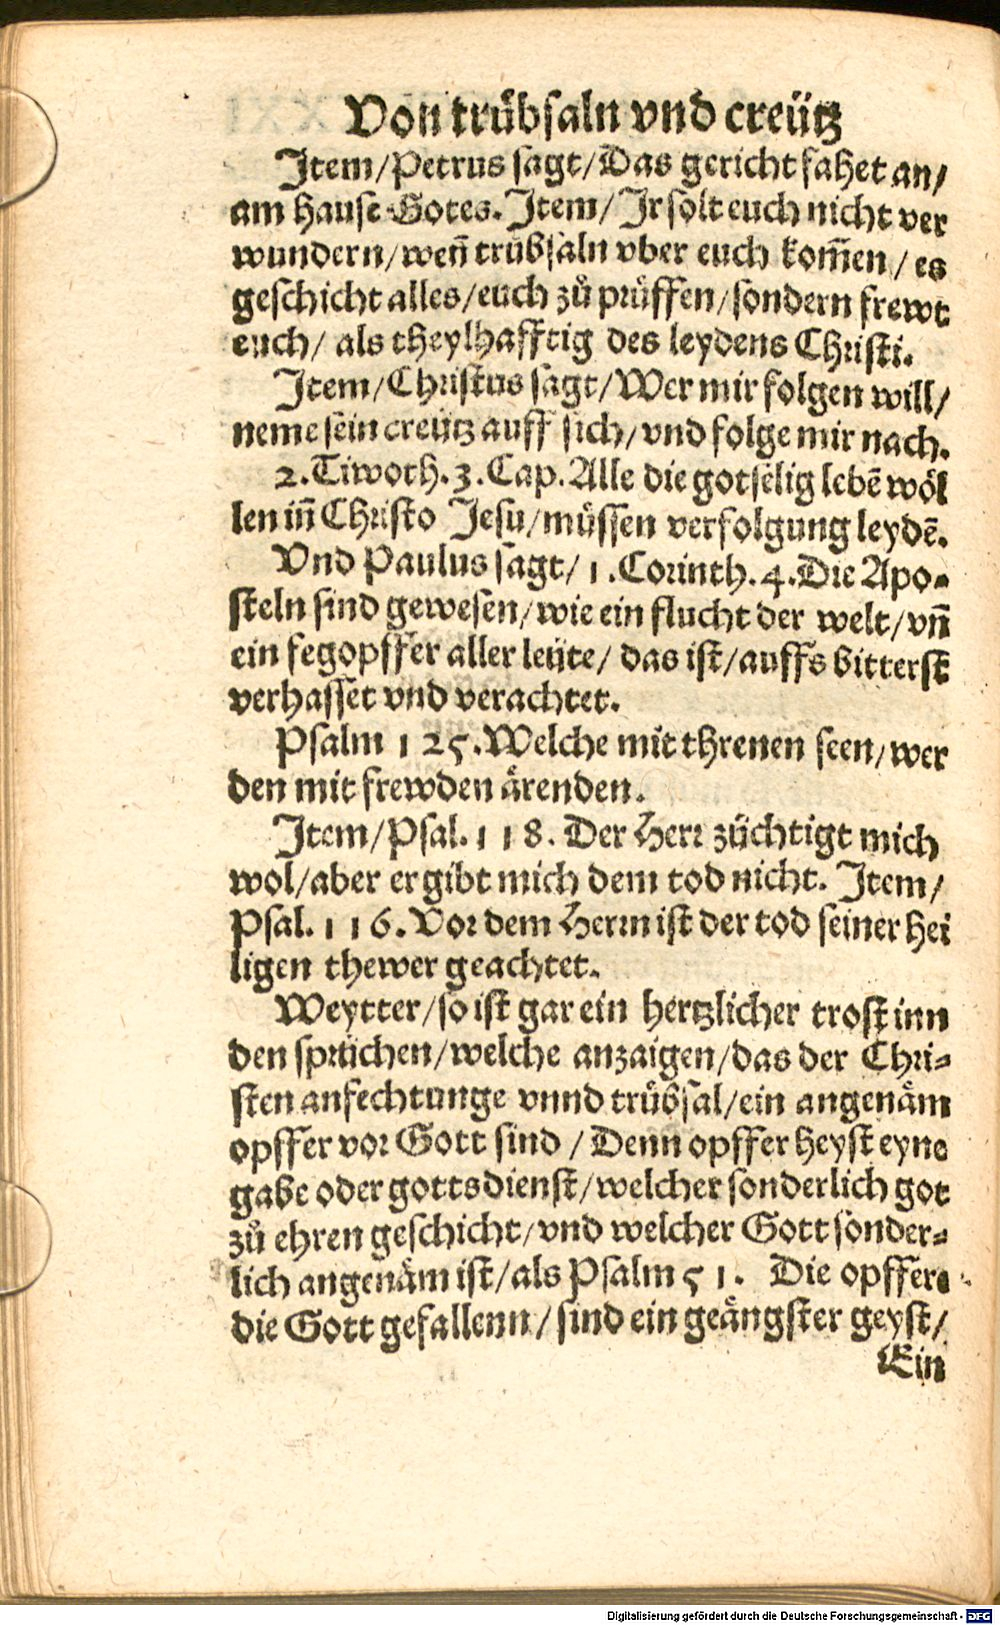 Von trübsaln vnd creütz
Jtem/Petrus sagt/Das gericht fahet an/
am hause Gotes. Jtem/ Jr solt euch nicht ver
wundern/weñ trübsaln vber euch kom̃en/es
geschicht alles/euch zů prüffen/sondern frewt
euch/ als theylhafftig des leydens Christi.
Jtem/Christus sagt/Wer mir folgen will/
neme sein creütz auff sich/vnd folge mir nach.
2.Timoth.3.Cap.Alle die gotselig lebẽ wöl
len iñ Christo Jesu/müssen verfolgung leydẽ.
Vnd Paulus sagt/1.Corinth.4.Die Apo-
steln sind gewesen/wie ein flucht der welt/vñ
ein fegopffer aller leüte/ das ist/auffs bitterst
verhasset vnd verachtet.
Psalm 125.Welche mit threnen seen/wer
den mit frewden ärenden.
Jtem/Psal.118. Der Herr züchtigt mich
wol/aber er gibt mich dem tod nicht. Jtem/
Psal.116.Vor dem Herrn ist der tod seiner hei
ligen thewer geachtet.
Weytter/so ist gar ein hertzlicher trost inn
den sprüchen/welche anzaigen/das der Chri-
sten anfechtunge vnnd trübsal/ein angenäm
opffer vor Gott sind /Denn opffer heyst eyne
gabe oder gottsdienst/welcher sonderlich got
zů ehren geschicht/vnd welcher Gott sonder-
lich angenäm ist/als Psalm 51. Die opffere
die Gott gefallenn/sind ein geängster geyst/
Ein
Digitalisierung gefördert durch die Deutsche Forschungsgemeinschaft - DFG